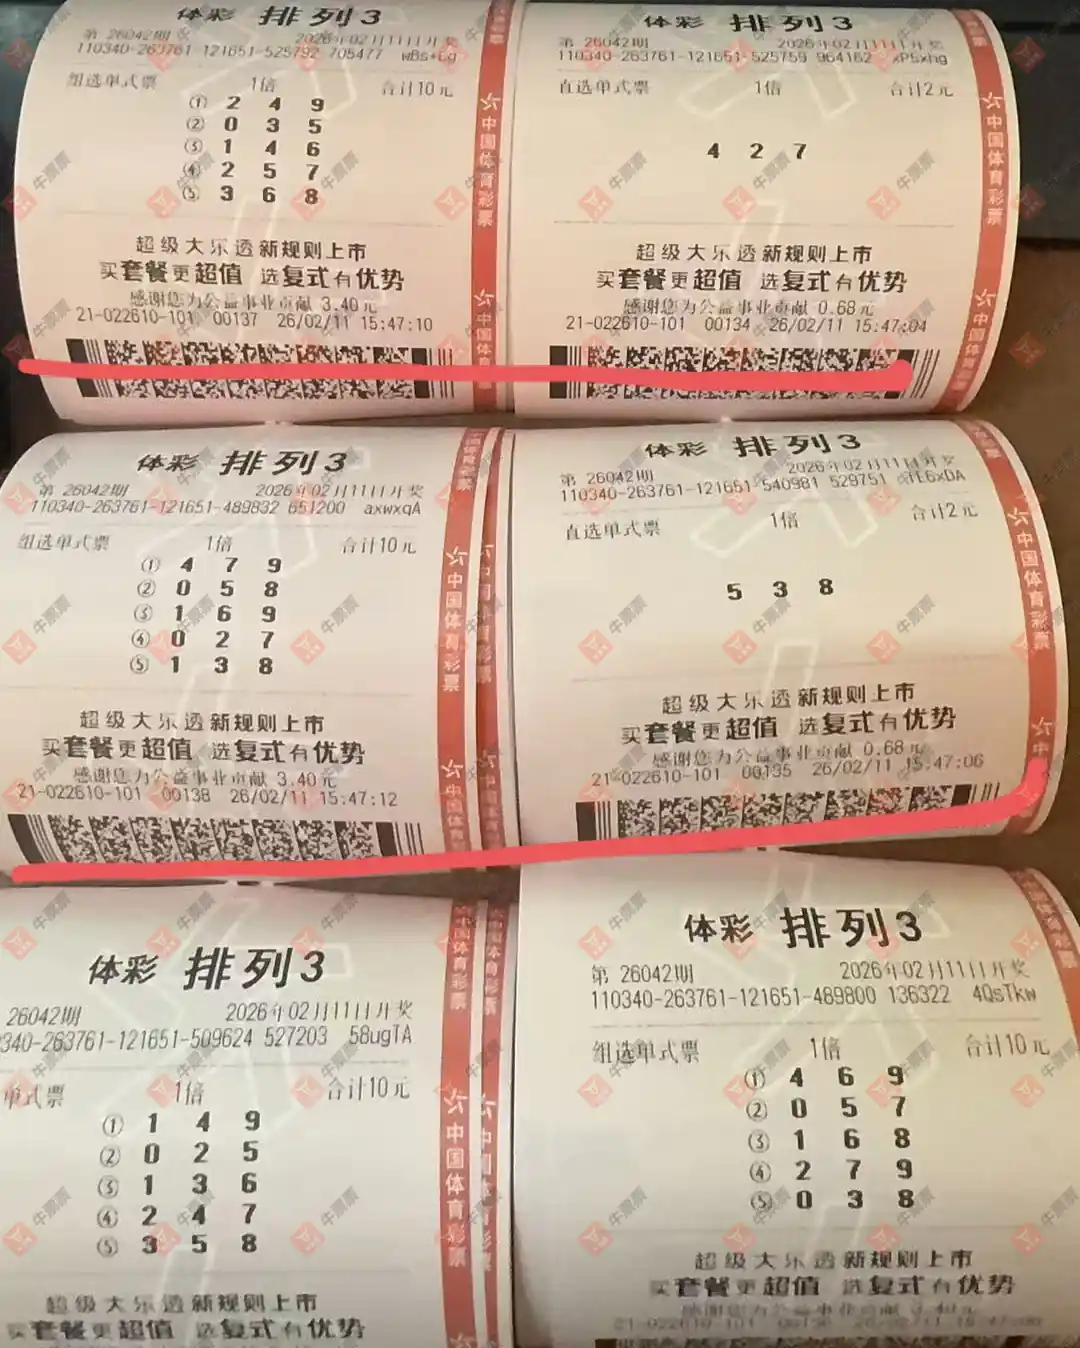 体彩 排列3
第 26042期 2026年02月11日开奖
110340-263761-121651-525792 705477 wBs+Lg
组选单式票 1倍 合计10元
① 2 4 9
② 0 3 5
③ 1 4 6
④ 2 5 7
⑤ 3 6 8
超级大乐透新规则上市
买套餐更超值 选复式有优势
感谢您为公益事业贡献 3.40元
21-022610-101 00137 26/02/11 15:47:10
中国体育彩票
体彩 排列3
第 26042期 2026年02月11日开奖
110340-263761-121651-525759 964162 xPsxhg
直选单式票 1倍 合计2元
4 2 7
超级大乐透新规则上市
买套餐更超值 选复式有优势
感谢您为公益事业贡献 0.68元
21-022610-101 00134 26/02/11 15:47:04
中国体育彩票
体彩 排列3
第 26042期 2026年02月11日开奖
110340-263761-121651-489832 651200 axwxqA
组选单式票 1倍 合计10元
① 4 7 9
② 0 5 8
③ 1 6 9
④ 0 2 7
⑤ 1 3 8
超级大乐透新规则上市
买套餐更超值 选复式有优势
感谢您为公益事业贡献 3.40元
21-022610-101 00138 26/02/11 15:47:12
中国体育彩票
体彩 排列3
第 26042期 2026年02月11日开奖
110340-263761-121651-540981 529751
直选单式票 1倍 合计2元
5 3 8
超级大乐透新规则上市
买套餐更超值 选复式有优势
感谢您为公益事业贡献 0.68元
21-022610-101 00135 26/02/11 15:47:06
中国体育彩票
体彩 排列3
26042期 2026年02月11日开奖
340-263761-121651-509624 527203 58ugTA
单式票 1倍 合计10元
① 1 4 9
② 0 2 5
③ 1 3 6
④ 2 4 7
⑤ 3 5 8
超级大乐透新规则上市
买套餐更超值 选复式有优势
中国体育彩票
体彩 排列3
第 26042期 2026年02月11日开奖
110340-263761-121651-489800 136322 4QsTkw
组选单式票 1倍 合计10元
① 4 6 9
② 0 5 7
③ 1 6 8
④ 2 7 9
⑤ 0 3 8
超级大乐透新规则上市
买套餐更超值 选复式有优势
感谢您为公益事业贡献 3.40元
牛票票